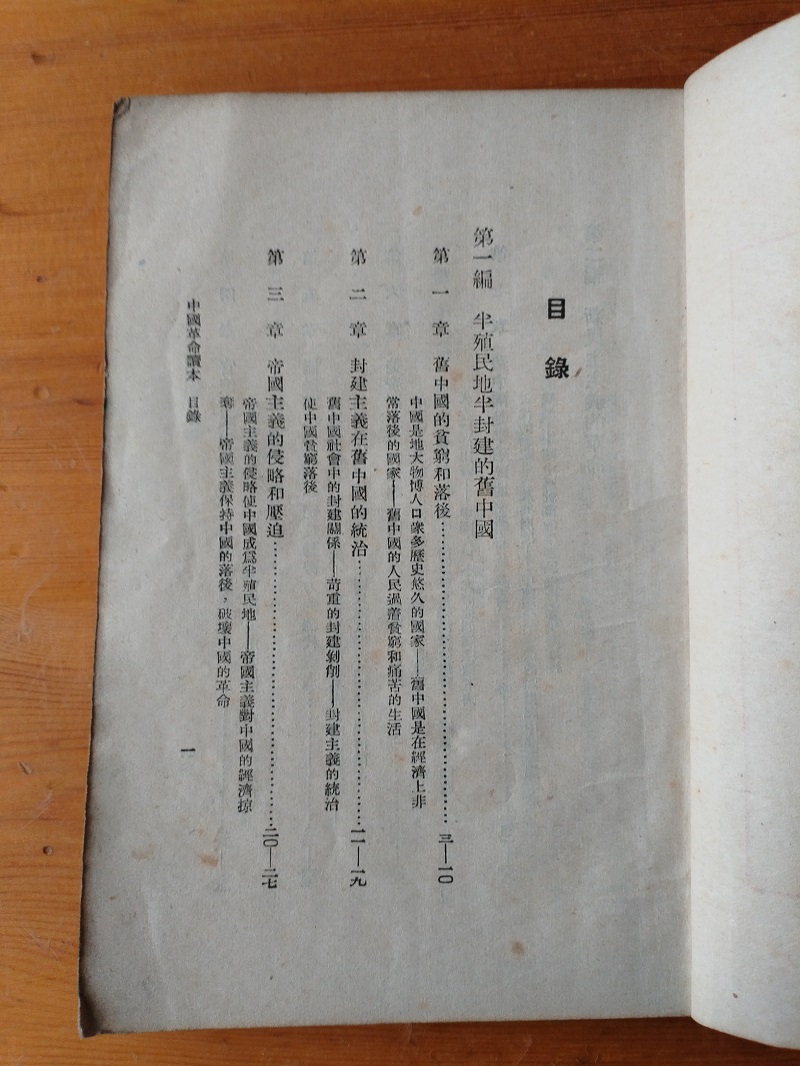 目錄
第一編 半殖民地半封建的舊中國
第一章 舊中國的貧窮和落後……三—一〇
中國是地大物博人口衆多歷史悠久的國家——舊中國是在經濟上非
常落後的國家——舊中國的人民過着貧窮和痛苦的生活
第二章 封建主義在舊中國的統治……一一—一九
舊中國社會中的封建關係——苛重的封建剝削——封建主義的統治
使中國貧窮落後
第三章 帝國主義的侵略和壓迫……二〇—二七
帝國主義的侵略使中國成爲半殖民地——帝國主義對中國的經濟掠
奪——帝國主義保持中國的落後，破壞中國的革命
中國革命讀本 目錄
一